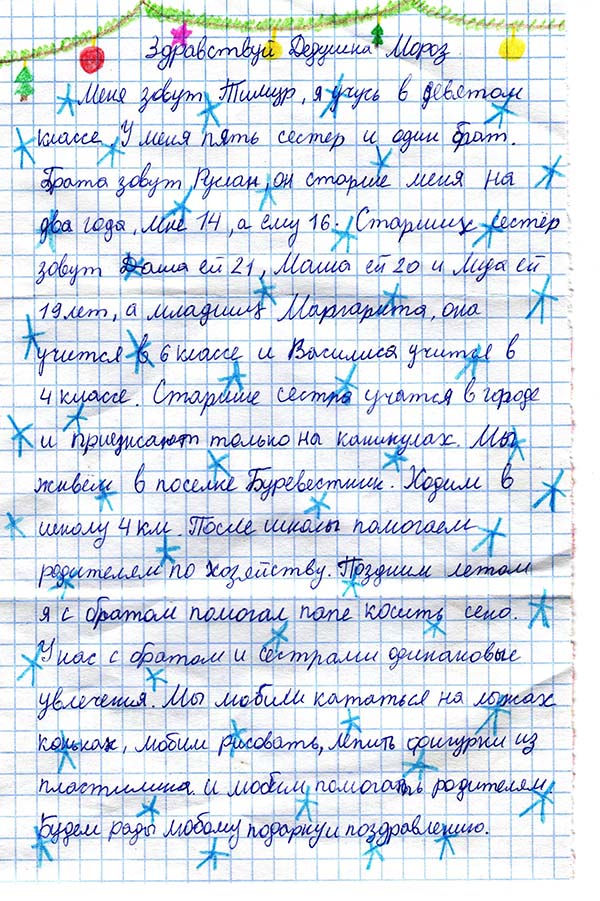 Здравствуй Дедушка Мороз
Меня зовут Тимур, я учусь в девятом
классе. У меня пять сестер и один брат.
Брата зовут Руслан, он старше меня на
два года, мне 14, а ему 16. Старших сестёр
зовут Даша ей 21, Маша ей 20 и Лида ей
19 лет, а младших Маргарита, она
учится в 6 классе и Василиса учится в
4 классе. Старшие сестры учатся в городе
и приезжают только на каникулах. Мы
живём в поселке Буревестник. Ходим в
школу 4 км. После школы помогаем
родителям по хозяйству. Поздним летом
я с братом помогал папе косить сено.
У нас с братом и сестрами одинаковые
увлечения. Мы любили кататься на лыжах
коньках, любим рисовать, лепить фигурки из
пластилина и любим помогать родителям.
Будем рады любому подарку и поздравлению.